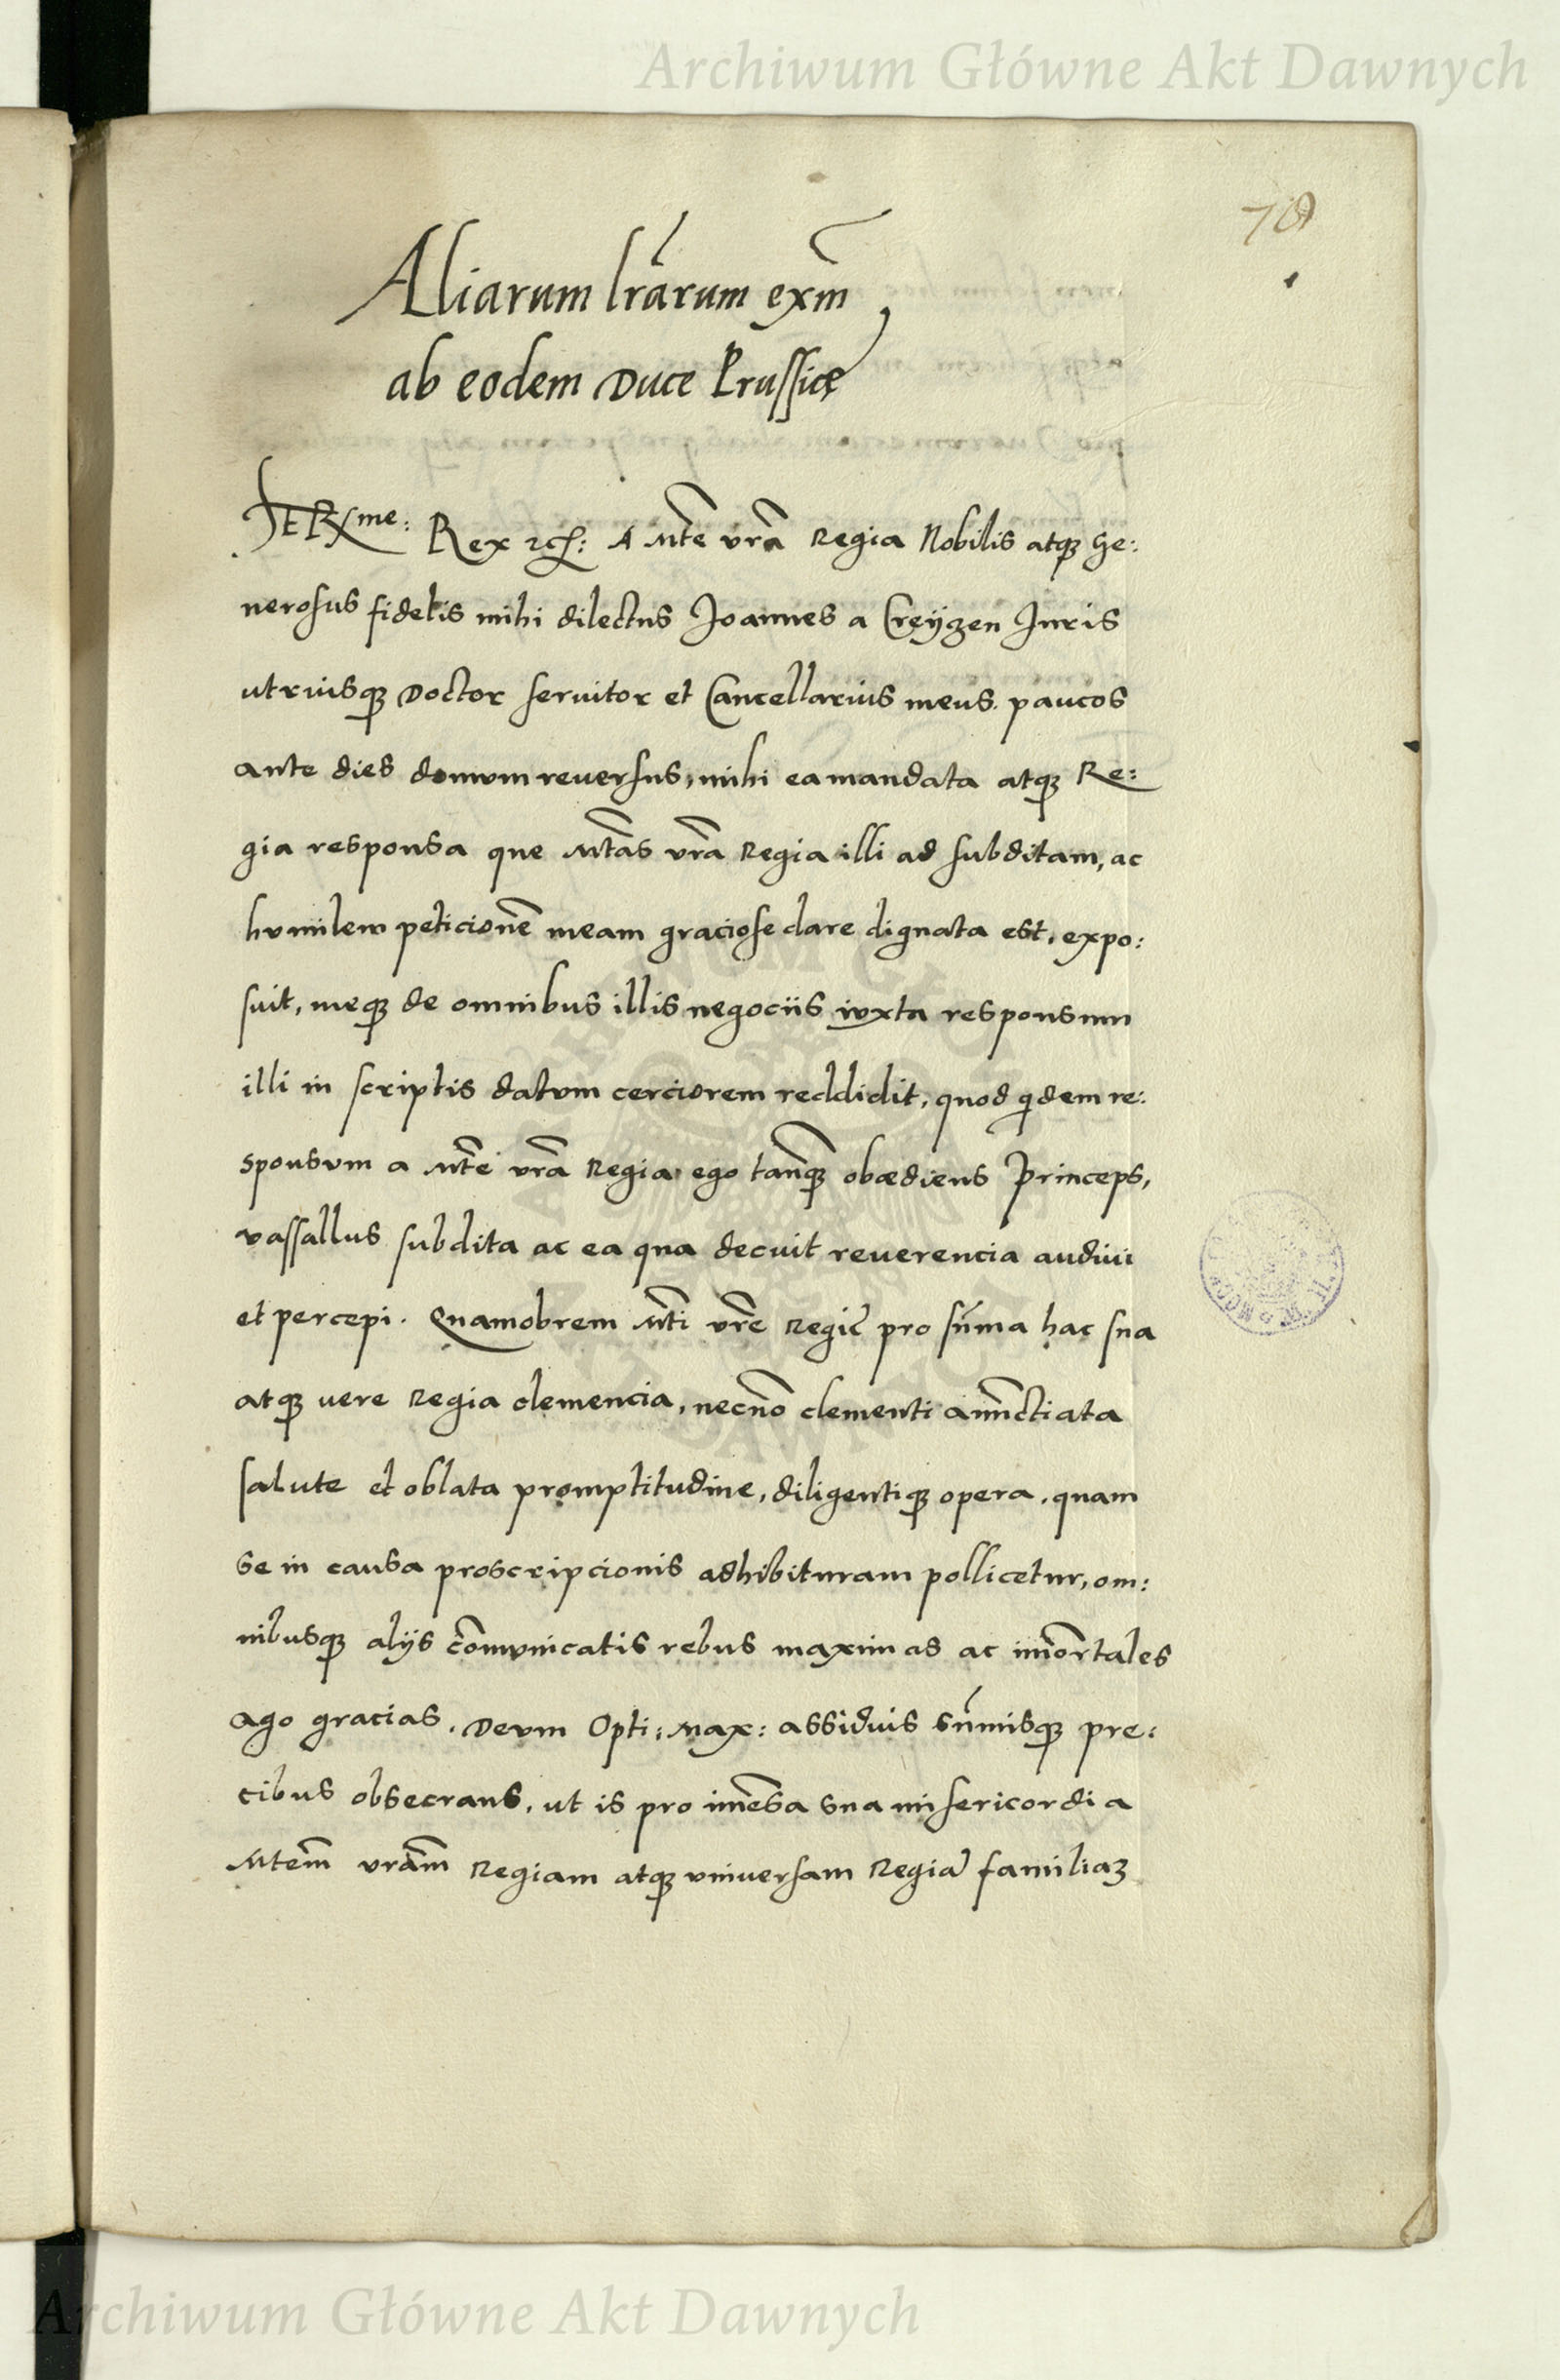 Archiwum Główne Akt Dawnych
78
Aliarum lr̃arum exm̃
ab eodem Duce Prussiæ
Rex A Mte vr̃a Regia Nobilis atqꝫ Ge:
nerosus fidelis mihi dilectus Joannes a Creÿtzen Juris
utriusqꝫ Doctor seruitor et Cancellarius meus. paucos
ante dies domum reuersus, mihi ea mandata atqꝫ Re:
gia responsa que Mtas vr̃a Regia illi ad subditam, ac
humilem peticionẽ meam graciose dare dignata est, expo:
suit, meqꝫ de omnibus illis negociis iuxta responsum
illi in scriptis datum cerciorem reddidit, quod qidem re:
sponsum a Mte vr̃a Regia ego tanqꝫ obædiens Princeps,
vassallus subdita ac ea qua decuit reuerencia audiui
et percepi. Quamobrem Mti vr̃e Regię pro sũma hac sua
atqꝫ uere Regia clemencia, necnõ clementi anũctiata
salute et oblata promptitudine, diligentiqꝫ opera, quam
se in causa proscripcionis adhibituram pollicetur, om:
nibusqꝫ alÿs cõmunicatis rebus maximas ac im̃ortales
ago gracias. Deum Opti: Max: assiduis sum̃isqꝫ pre:
cibus obsecrans, ut is pro im̃esa sua misericordia
Mtem vr̃am Regiam atqꝫ vniuersam Regiã familiaꝫ
Archiwum Główne Akt Dawnych